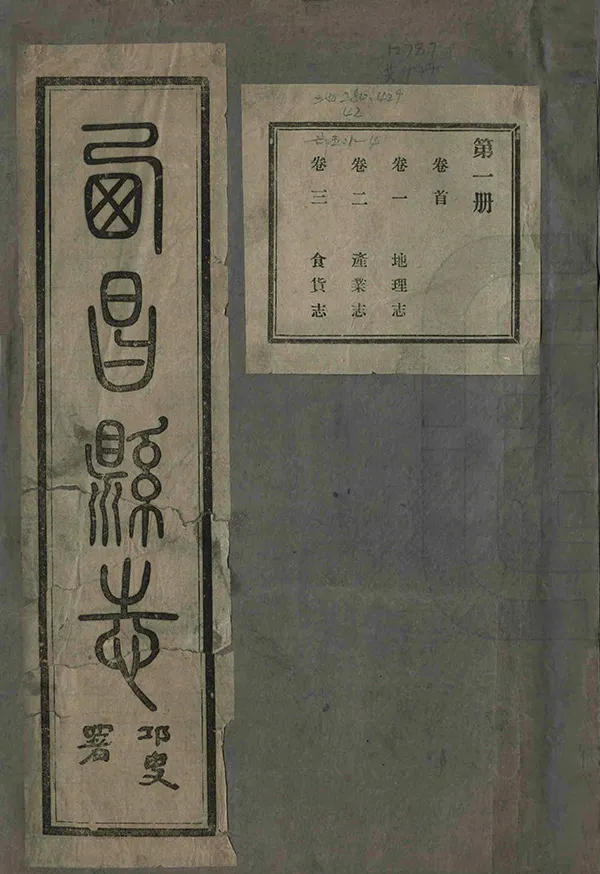 西昌縣志
署
第一册
卷首
卷一 地理志
卷二 產業志
卷三 食貨志
42